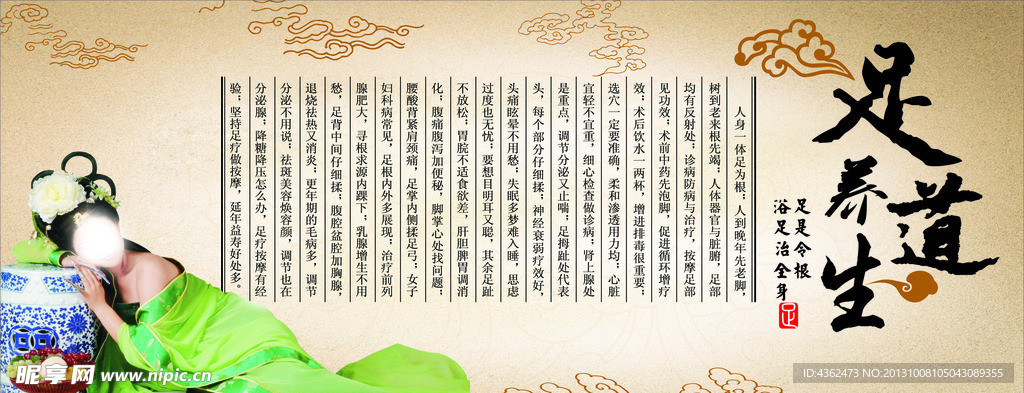 足道
养生
足是令根
浴足治全身
足
人身一体足为根；人到晚年先老脚，
树到老来根先竭；人体器官与脏腑，足部
均有反射处；诊病防病与治疗，按摩足部
见功效；术前中药先泡脚，促进循环增疗
效；术后饮水一两杯，增进排毒很重要；
选穴一定要准确，柔和渗透用力均；心脏
宜轻不宜重，细心检查做诊病；肾上腺处
是重点，调节分泌又止喘；足拇趾处代表
头，每个部分仔细揉；神经衰弱疗效好，
头痛眩晕不用愁；失眠多梦难入睡，思虑
过度也无忧；要想目明耳又聪，其余足趾
不放松；胃脘不适食欲差，肝胆脾胃调消
化；腹痛腹泻加便秘，脚掌心处找问题；
腰酸背紧肩颈痛，足掌内侧揉足弓；女子
妇科病常见，足根内外多展现；治疗前列
腺肥大，寻根求源内踝下；乳腺增生不用
愁，足背中间仔细揉；腹腔盆腔加胸腺，
退烧祛热又消炎；更年期的毛病多，调节
分泌不用说；祛斑美容焕容颜，调节也在
分泌腺；降糖降压怎么办，足疗按摩有经
验；坚持足疗做按摩，延年益寿好处多。
昵享网 www.nipic.cn
ID:4362473 NO:20131008105043089355